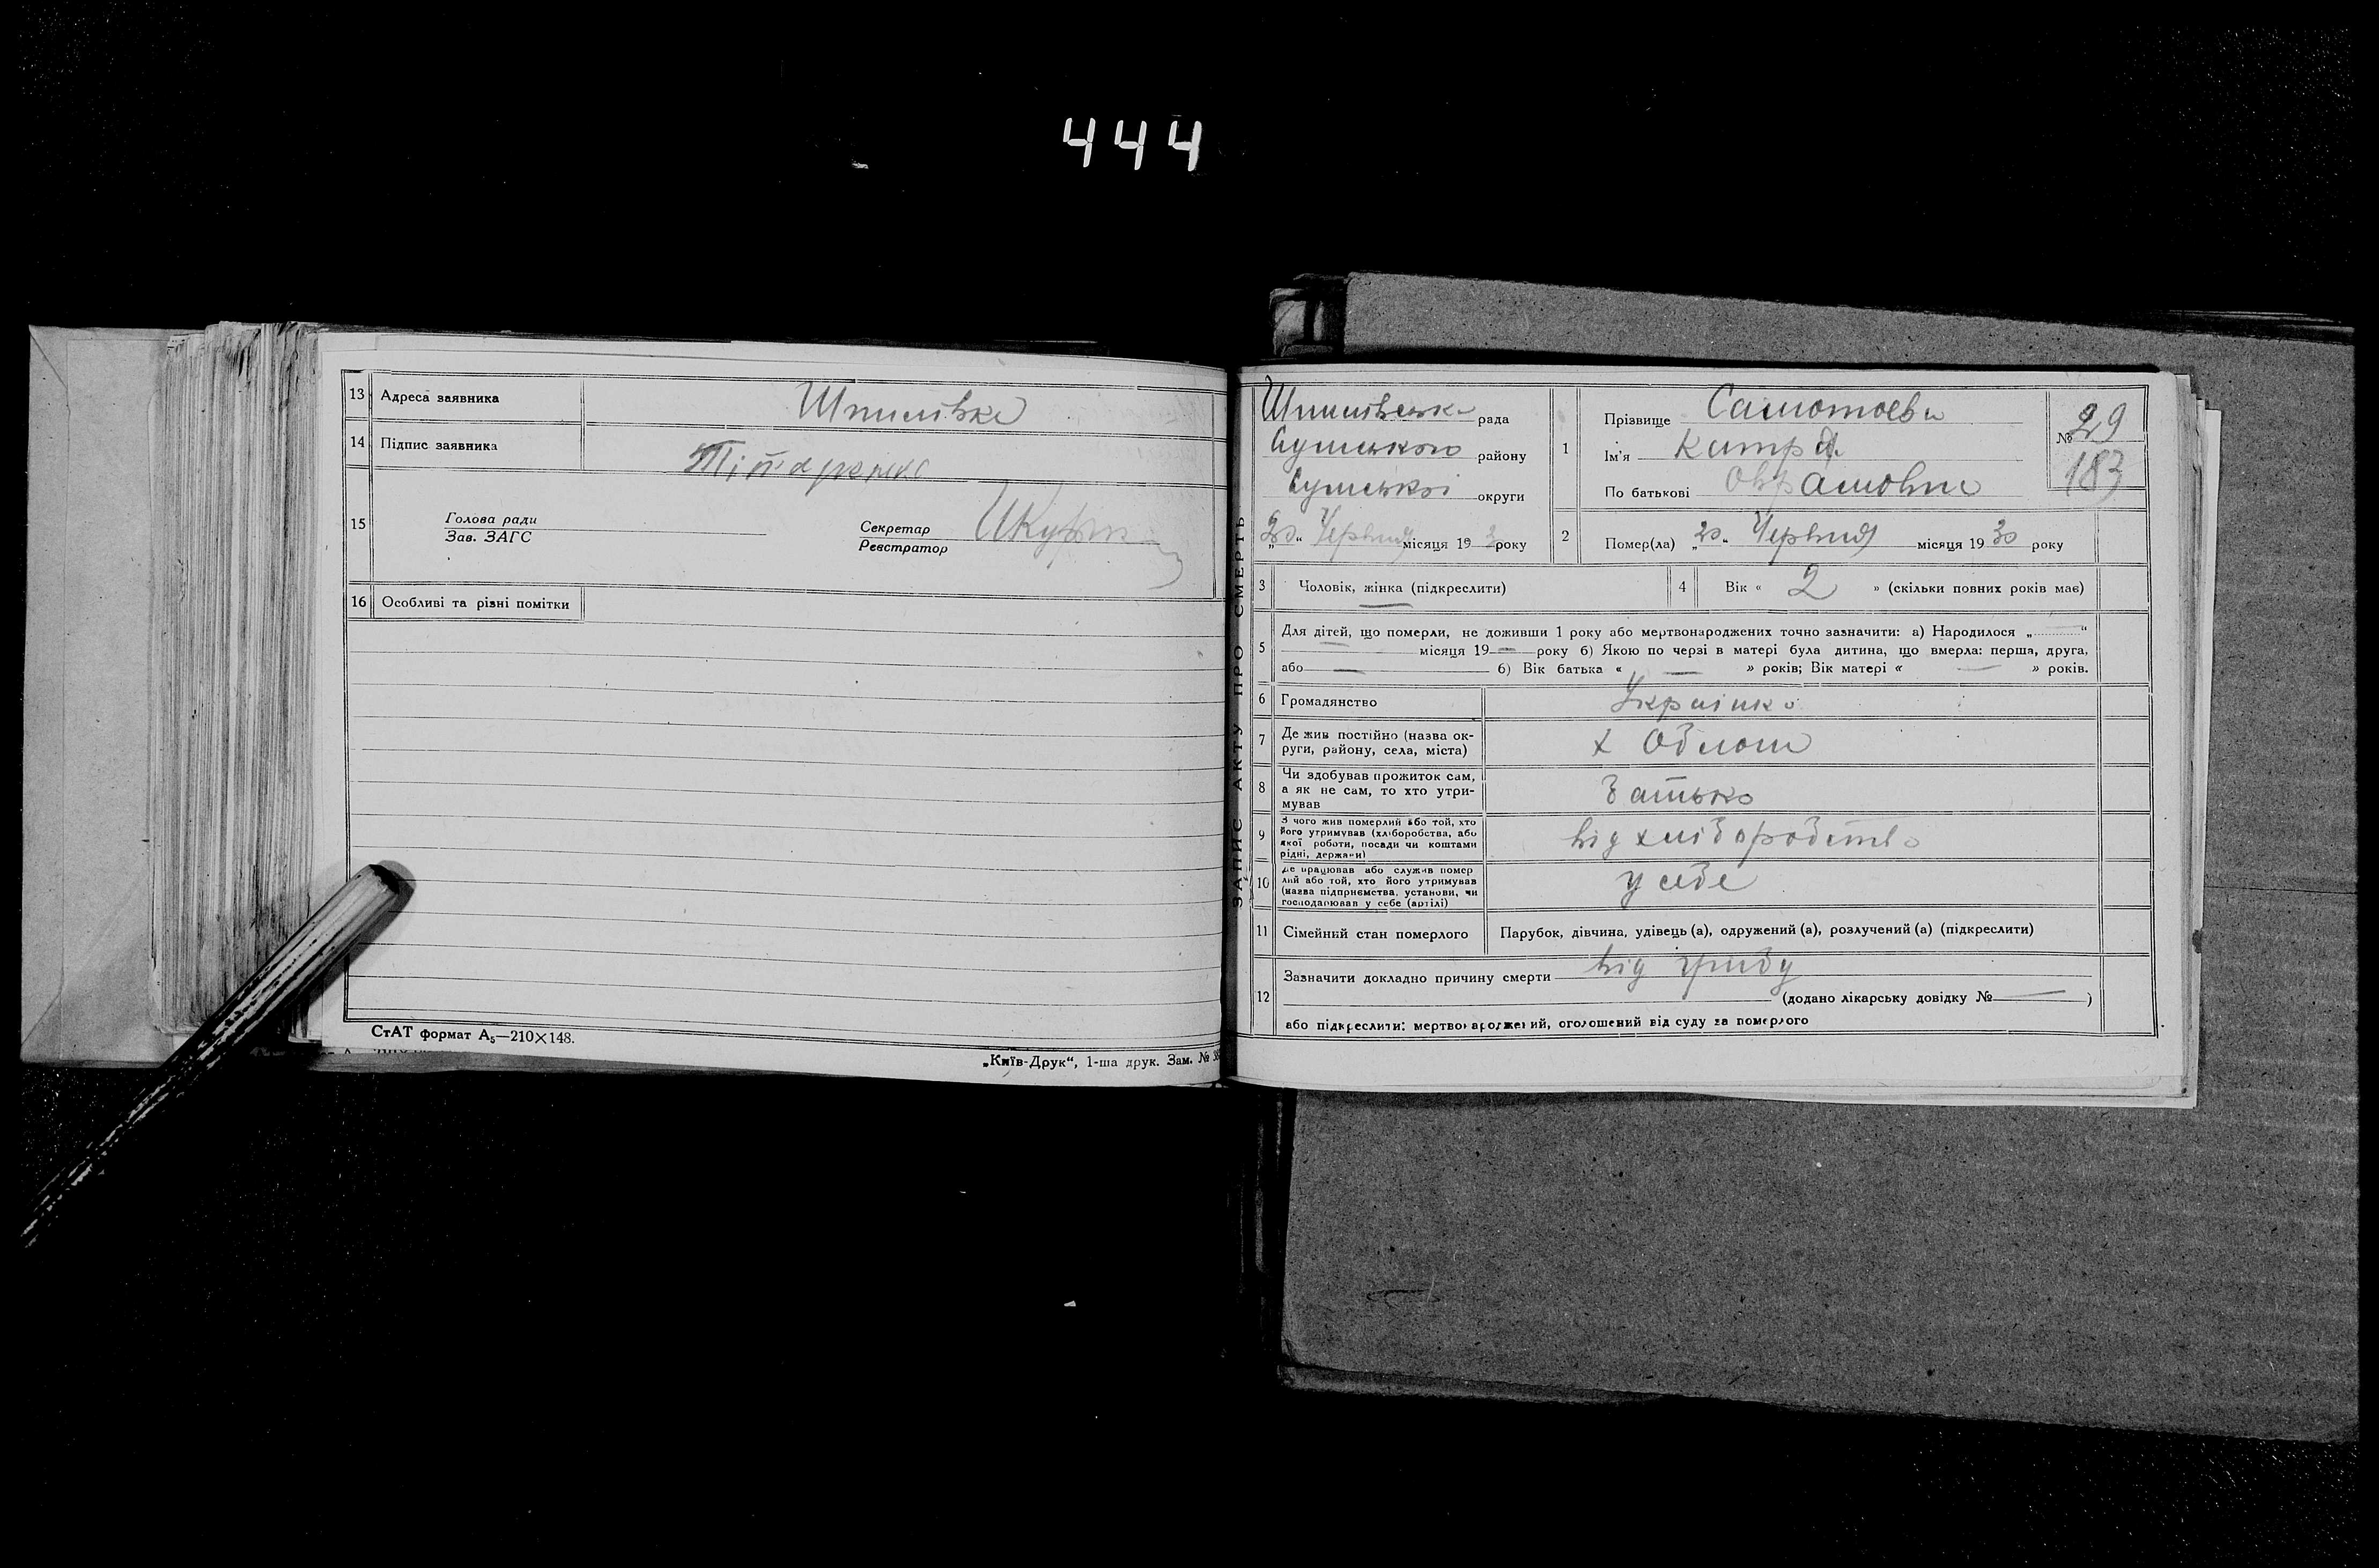 444
13 Адреса заявника Шпилівка
14 Підпис заявника Тітаренко
15 Голова ради
Зав. ЗАГС
Секретар
Реєстратор
16 Особливі та різні помітки
СтАТ формат А₅—210×148.
„Київ-Друк“, 1-ша друк. Зам. №
ЗАПИС АКТУ ПРО СМЕРТЬ
Шпилівська рада
Сумського району
Сумської округи
„20“ Червня місяця 193 року
1 Прізвище
Ім'я Катря
По батькові Оврамовна
№ 29
183
2 Помер(ла) „20„ Червня місяця 1930 року
3 Чоловік, жінка (підкреслити)
4 Вік « 2 » (скільки повних років має)
5 Для дітей, що померли, не доживши 1 року або мертвонароджених точно зазначити: а) Народилося „ “
— місяця 19— року б) Якою по черзі в матері була дитина, що вмерла: перша, друга,
або — б) Вік батька « — » років; Вік матері « — » років.
6 Громадянство Українка
7 Де жив постійно (назва ок-
руги, району, села, міста)
х Облоги
8 Чи здобував прожиток сам,
а як не сам, то хто утри-
мував
батько
9 З чого жив померлий або той, хто
його утримував (хліборобства, або
якої роботи, посади чи коштами
рідні, держави)
від хліборобства
10 Де працював або служив помер
лий або той, хто його утримував
(назва підприємства, установи, чи
господарював у себе (артілі)
у себе
11 Сімейний стан померлого Парубок, дівчина, удівець (а), одружений (а), розлучений (а) (підкреслити)
12 Зазначити докладно причину смерти від
(додано лікарську довідку № — )
або підкреслити: мертвонароджений, оголошений від суду за померлого